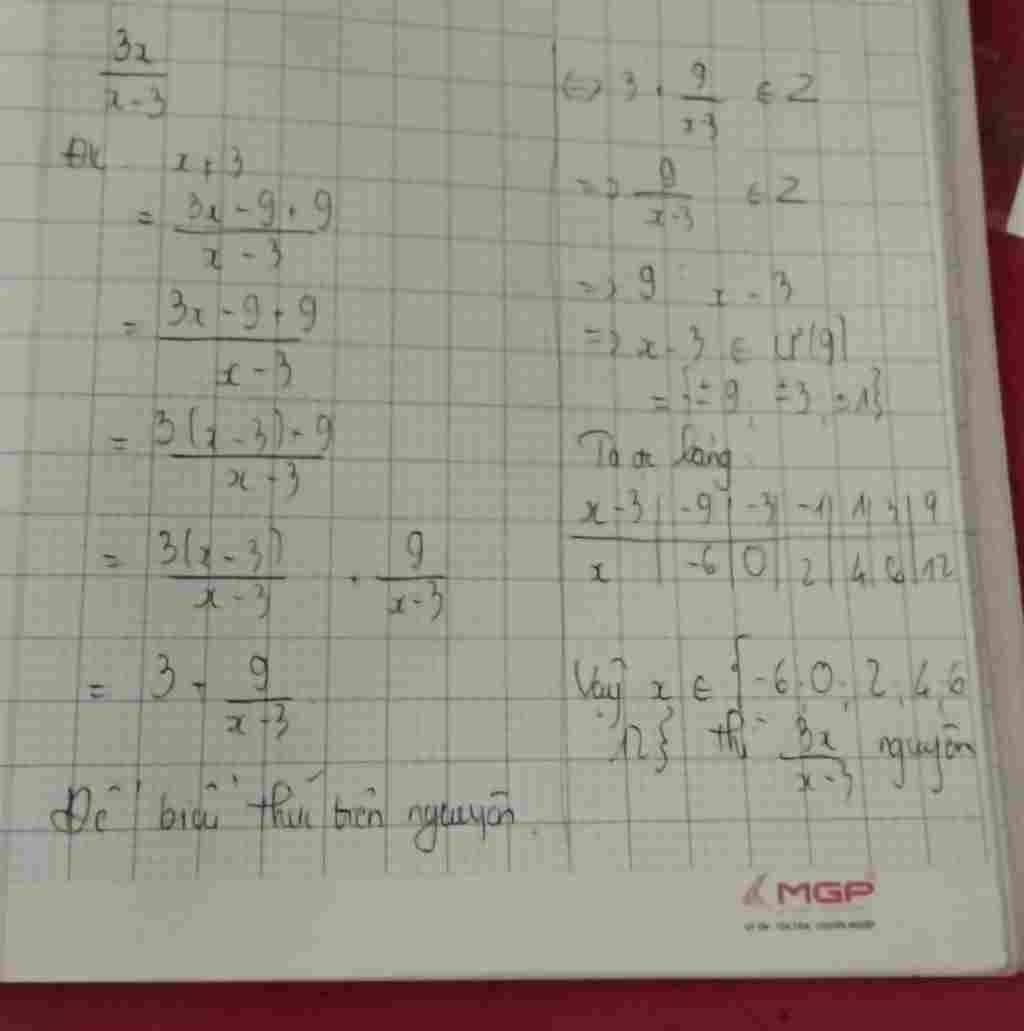 3x/(x-3)
ĐK x ≠ 3
= (3x - 9 + 9)/(x - 3)
= (3x - 9 + 9)/(x - 3)
= (3(x - 3) + 9)/(x - 3)
= 3(x - 3)/(x - 3) + 9/(x - 3)
= 3 + 9/(x - 3)
Để biểu thức trên nguyên.
<=> 3 + 9/(x-3) ∈ Z
=> 9/(x-3) ∈ Z
=> 9 ⋮ x - 3
=> x - 3 ∈ Ư(9)
= {±9, ±3, ±1}
Ta có bảng:
x - 3 | -9 | -3 | -1 | 1 | 3 | 9
x | -6 | 0 | 2 | 4 | 6 | 12
Vậy x ∈ {-6, 0, 2, 4, 6
, 12} thì 3x/(x-3) nguyên
MGP